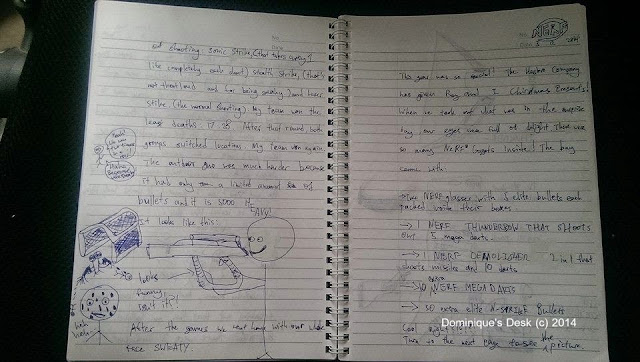 out shooting, Sonic Strike, (that takes
like completely quite short) stealth strike, (that's
not that loud and for being sneaky) and
strike (the normal shooting). My team won the
least deaths, 17 After that round both
groups switched locations. My Team won again.
The outdoor was much harder because
it had only a limit of
bullets and it is SOOO HEAVY!
It looks like this:
looks
funny
isn't it?
heh
heh
After the games we went home with our
face SWEATY.
NERF
2014
This year was so special! The Hasbro Company
has given Ray and I Christmas Presents!
When we took out what was in the surprise
bag our eyes were full of delight. There were
so many NERF gadgets inside! The bag
came with:
NERF glasses with 5 elite bullets each
packed inside their boxes
→ 1 NERF THUNDERBOW THAT SHOOTS
5 mega darts
→ 1 NERF DEMOLISHER 2 in 1 that
shoots missiles and 10 darts
→ 10 NERF MEGA DARTS
→ 50 extra elite N-STRIKE Bullets
Cool
Turn to the next page to see the picture.
Dominique's Desk (c) 2014